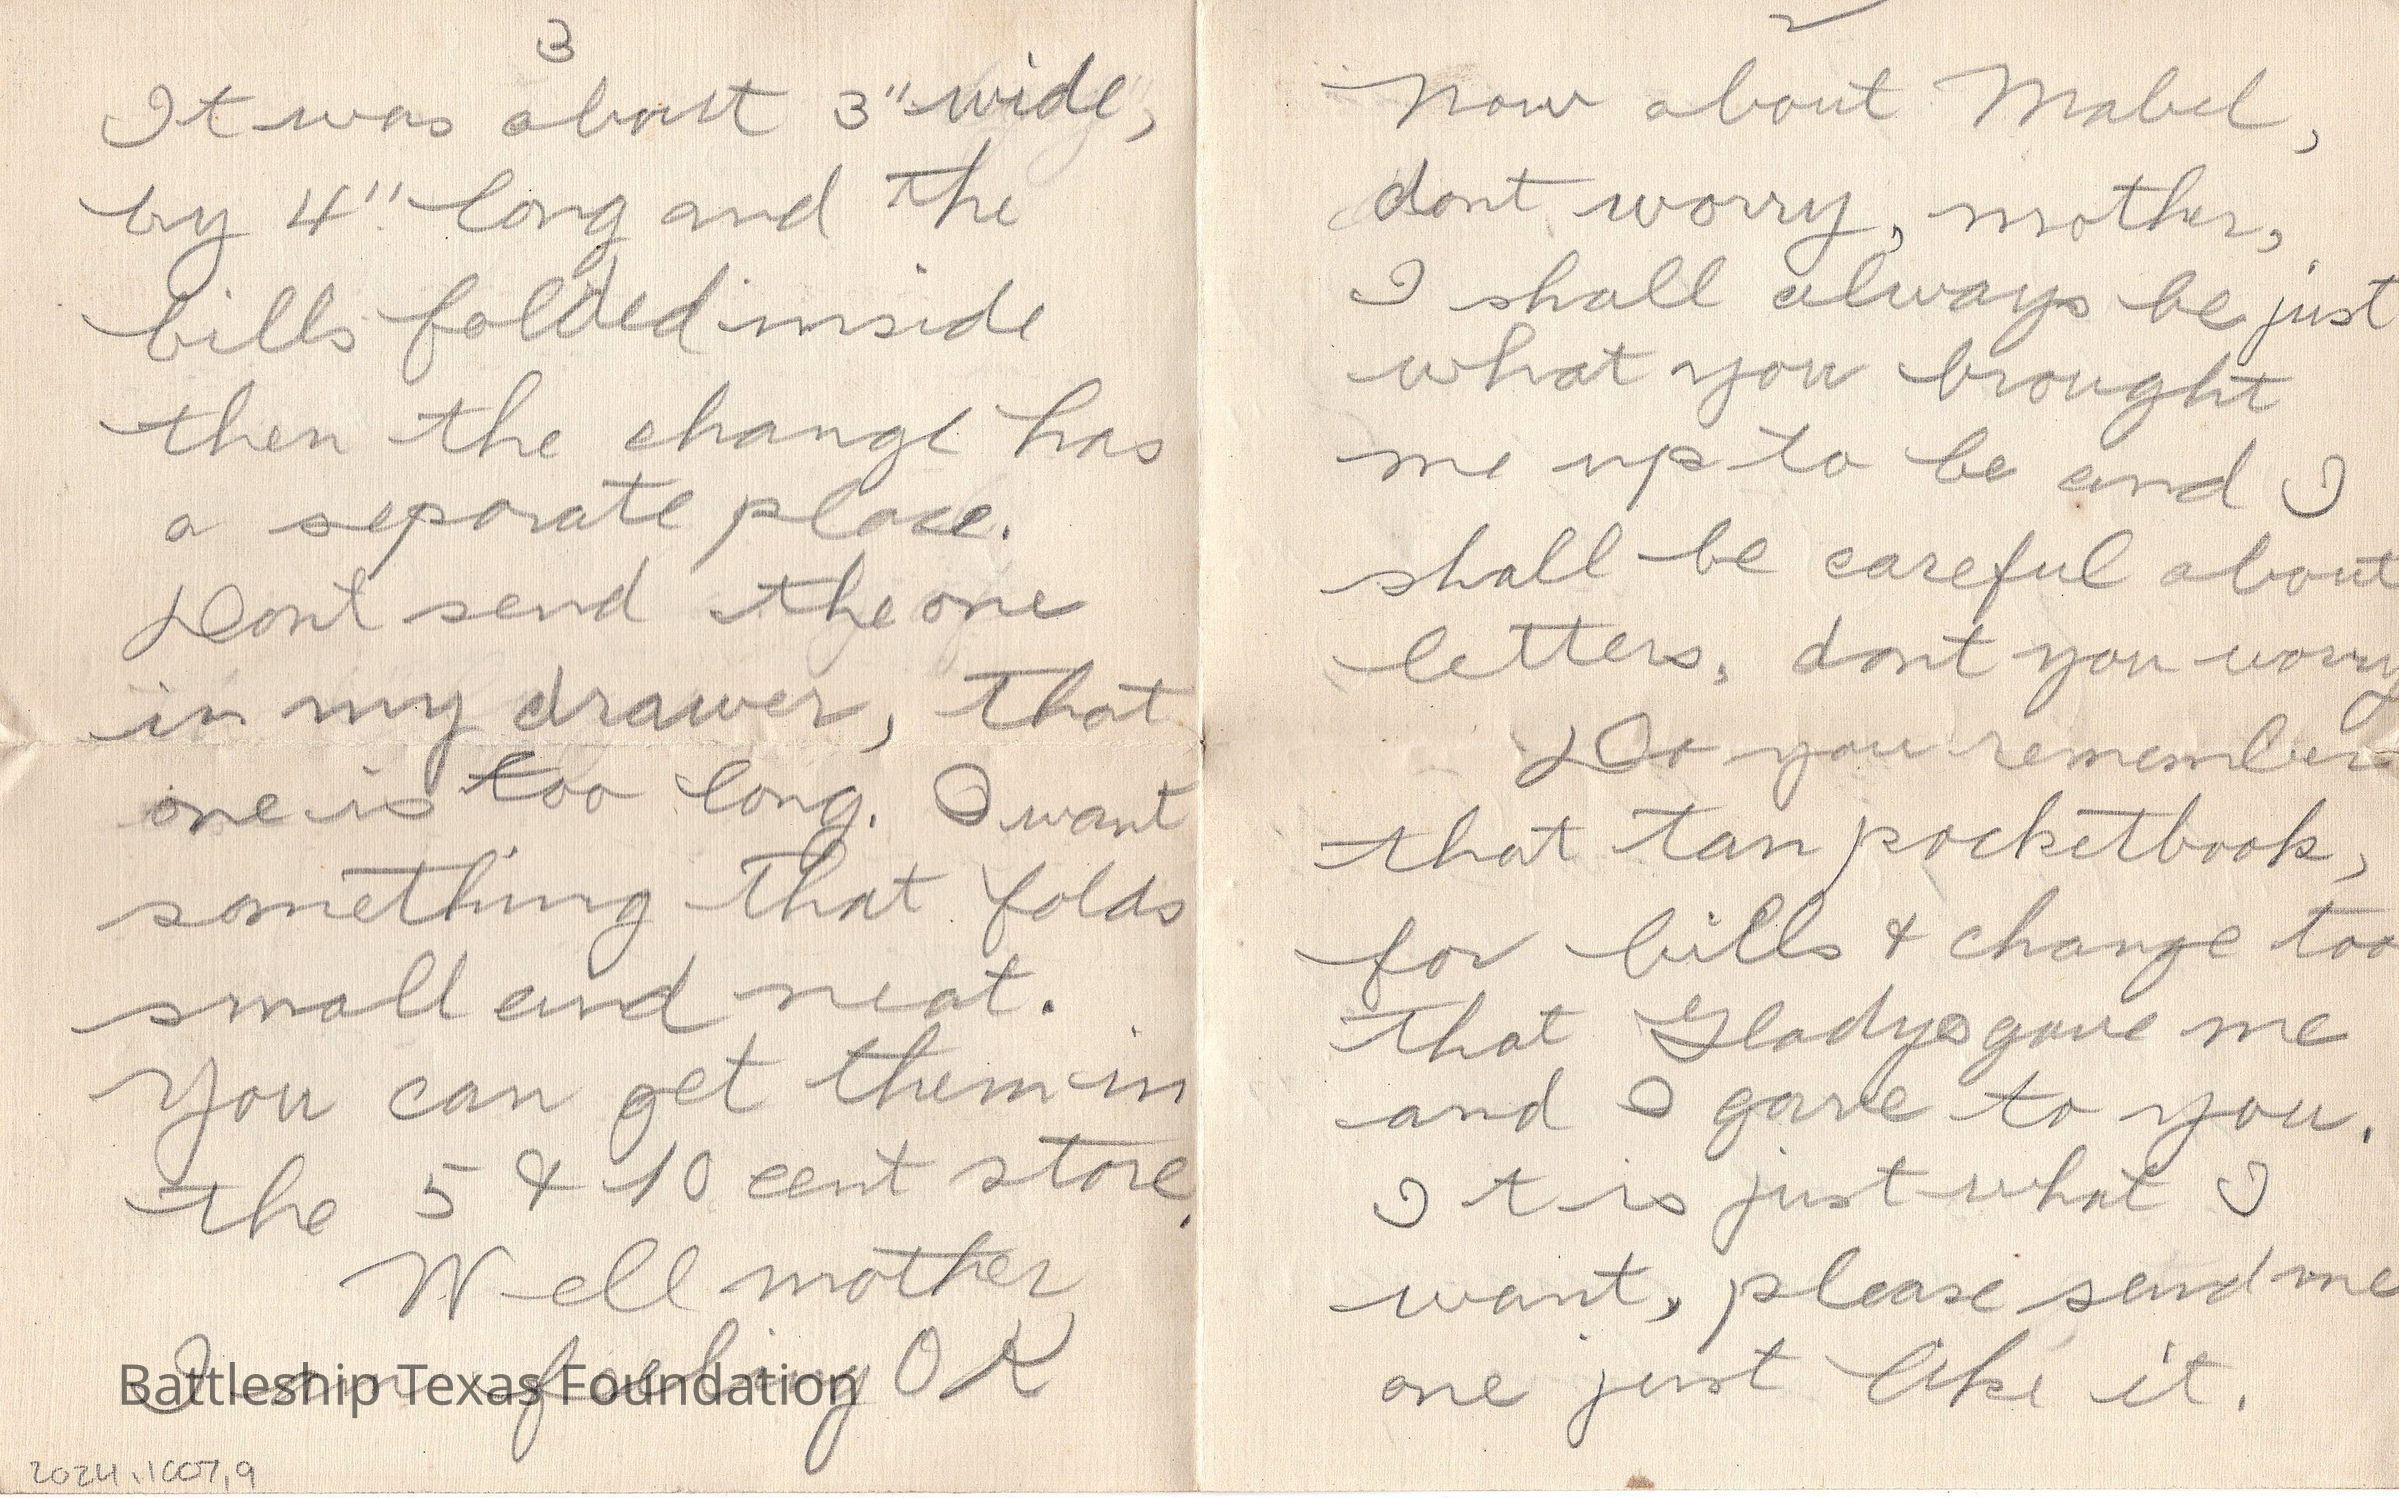 3
It was about 3" wide,
by 4" long and the
bills folded inside
then the change has
a separate place.
Dont send the one
in my drawer, that
one is too long. I want
something that folds
small and neat.
You can get them in
the 5 & 10 cent store.
Well mother
I am feeling OK
Battleship Texas Foundation
2024.1007.9
2
Now about Mabel,
dont worry, mother,
I shall always be just
what you brought
me up to be and I
shall be careful about
letters, dont you worry
Do you remember
that tan pocketbook,
for bills & change too
that Gladys gave me
and I gave to you.
It is just what I
want, please send me
one just like it.